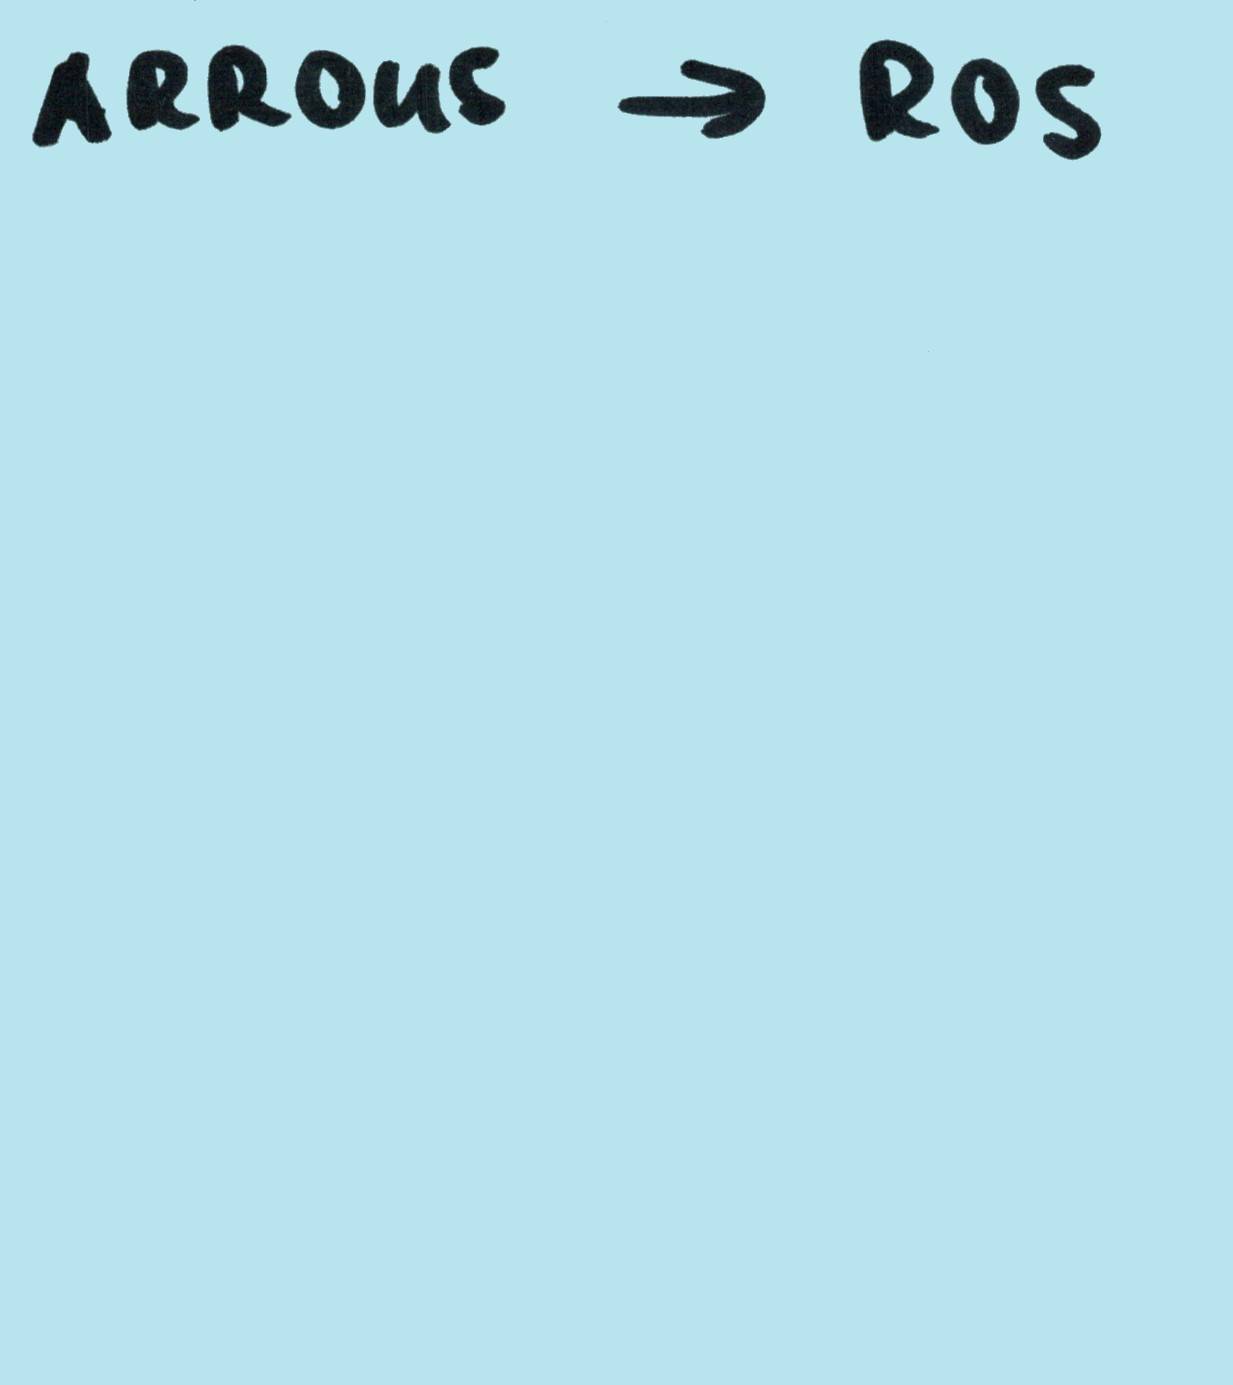 ARROUS → ROS